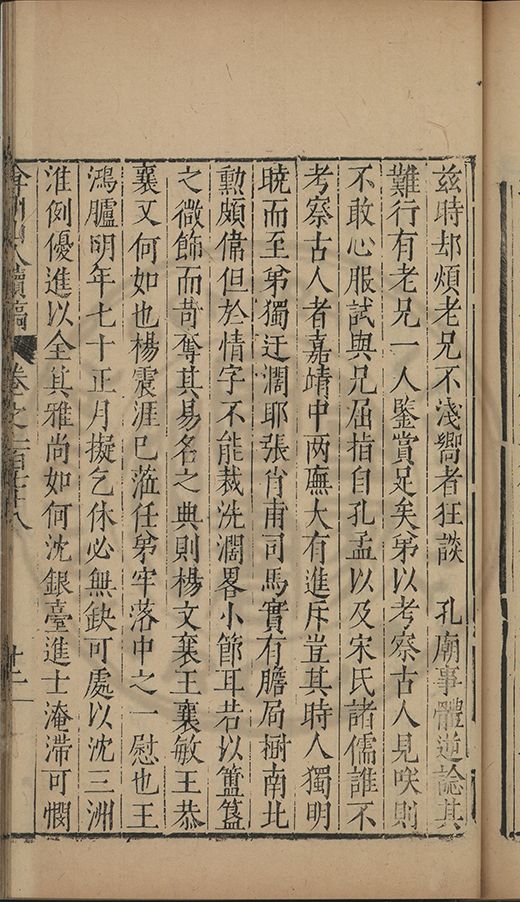 兹時却煩老兄不淺嚮者狂談　孔廟事體逆諗其
難行有老兄一人鑒賞足矣弟以考察古人見咲則
不敢心服試與兄屈指自孔孟以及宋氏諸儒誰不
考察古人者嘉靖中两廡大有進斥豈其時人獨明
曉而至弟獨迂濶耶張肖甫司馬實有膽局樹南北
勳頗偉但於情字不能裁洗濶畧小節耳若以簠簋
之微飾而苛奪其易名之典則楊文襄王襄敏王恭
襄又何如也楊震涯已蒞任弟牢落中之一慰也王
鴻臚明年七十正月擬乞休必無缺可處以沈三洲
淮例優進以全其雅尚如何沈銀臺進士淹滯可憫
弇州山人續稿 卷之一百七十八 廿二